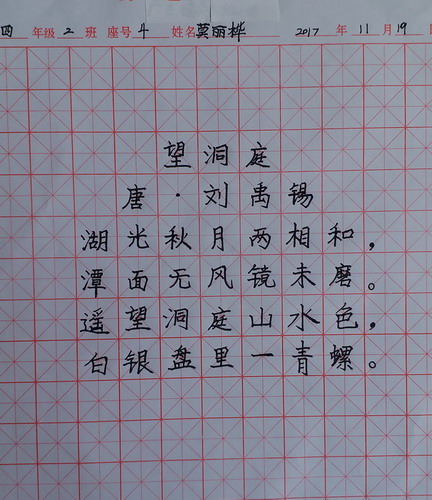 四 年级 2 班 座号 4 姓名 莫丽桦 2017 年 11 月 19
望洞庭
唐·刘禹锡
湖光秋月两相和，
潭面无风镜未磨。
遥望洞庭山水色，
白银盘里一青螺。